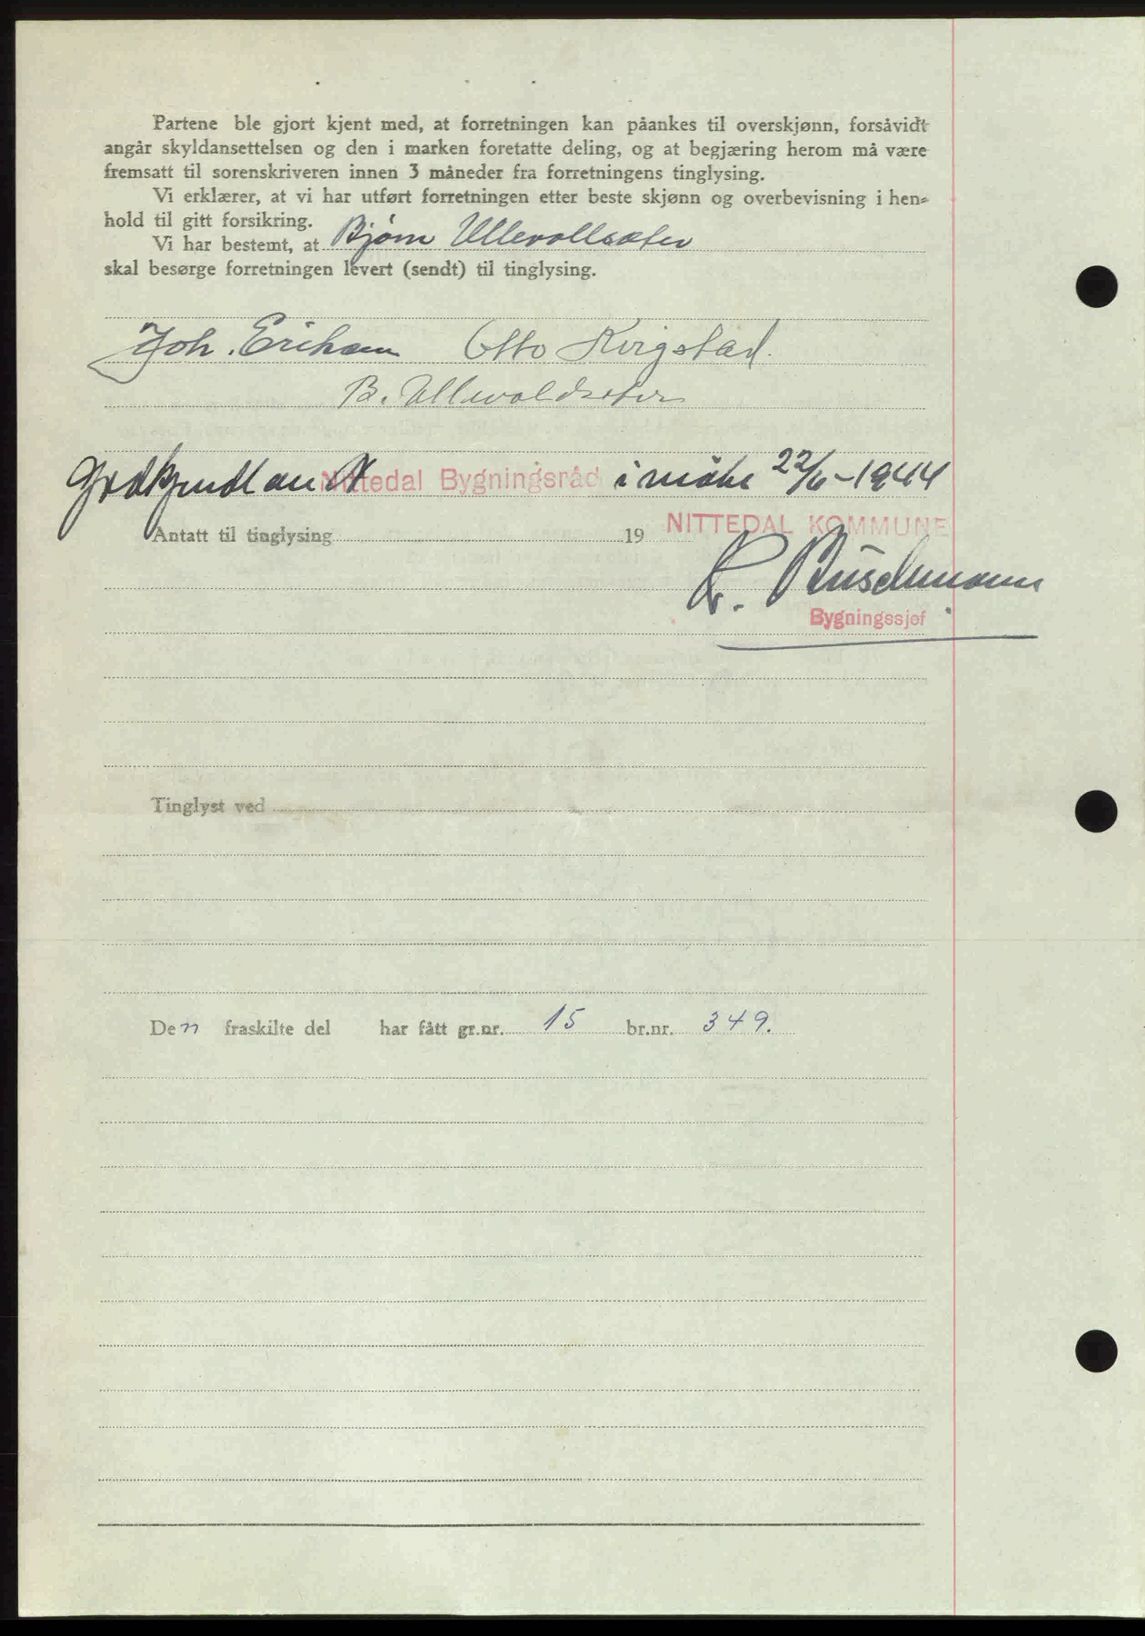 Partene ble gjort kjent med, at forretningen kan påankes til overskjønn, forsåvidt
angår skyldansettelsen og den i marken foretatte deling, og at begjæring herom må være
fremsatt til sorenskriveren innen 3 måneder fra forretningens tinglysing.
Vi erklærer, at vi har utført forretningen etter beste skjønn og overbevisning i hen-
hold til gitt forsikring.
Vi har bestemt, at Bjørn Ullevollsæter
skal besørge forretningen levert (sendt) til tinglysing.
Joh. Eriksen Otto Kvigstad.
B. Ullevoldseter
Godkjendt av Nittedal Bygningsråd i møte 22/6-1944
Antatt til tinglysing 19 NITTEDAL KOMMUNE
Buschmann
Bygningssjef
Tinglyst ved
Den fraskilte del har fått gr.nr. 15 br.nr. 349.